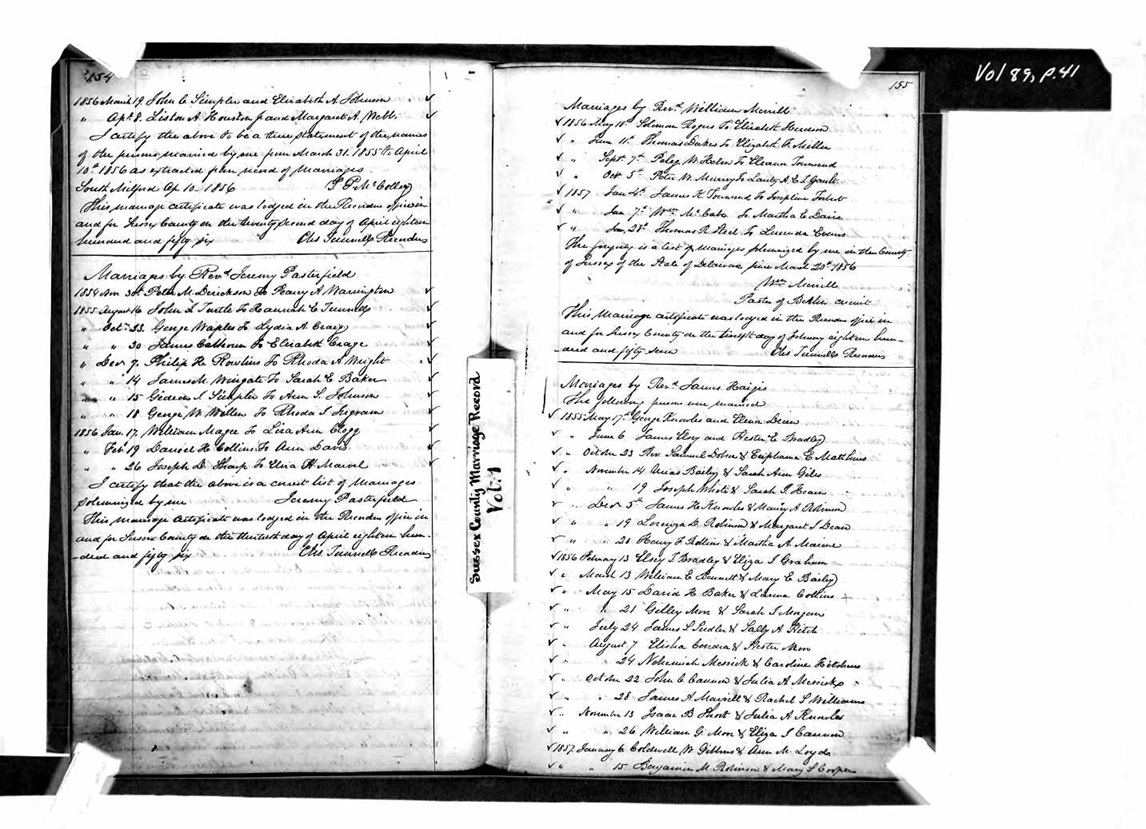 154
1856 March 19. John C Simpler and Elizabeth A Johnson
" Apl. 8. Liston A. Houston and Margaret A. Webb
I certify the above to be a true statement of the names
of the persons married by me from March 31. 1855 to April
10th 1856 as extracted from record of marriages
South Milford Ap. 10. 1856 McColley
This marriage certificate was lodged in the Recorders office in
and for Sussex County on the twenty second day of April eighteen
hundred and fifty six Chs Tunnell Recorder
Marriages by Revd Jeremy Pasterfield
1854 Nov 30th Peter M. Derickson To Peary A Warrington
1855 August 16. John L Tuttle To Hannah C Tunnell
" Octr 23. George Waples To Lydia A. Craig
" " 30 James Calhoun To Elizabeth Crage
" Decr 7. Philip H Rowlins To Rhoda A. Wright
" " 14 James M. Wingate To Sarah E Baker
" " 15 Gideon S Simpler To Ann S. Johnson
" " 18 George W Willen To Rhoda I Ingram
1856 Jan. 17. William Magee To Liza Ann Clogg
" Feb 19 Daniel H Collins To Ann Davis
" " 26 Joseph D. Sharp To Eliza H Marvel
I certify that the above is a correct list of Marriages
Solemnized by me Jeremy Pasterfield
This marriage certificate was lodged in the Recorders office in
and for Sussex County on the thirtieth day of April eighteen hun-
-dred and fifty six Chs Tunnell Recorder
Sussex County Marriage Record
Vol. 1
Vol 89, p. 41
155
Marriages by Revd William Merrill
1856 May 18th Soloman Rogers To Elizabeth Hudson
" June 11th Thomas Dukes To Elizabeth F. Miller
" Sept 7th Peleg W. Helm To Eleanor Townsend
" Oct 5th Peter W. Murray To Lanty A. E. I. Gault
1857 Jan 4th James K Townsend To Josephine
" Jan 7th Wm McCabe To Martha E Davis
" Jan, 28th Thomas R Steel To Lucinda Evans
The foregoing is a list of Marriages solemnized by me in the County
of Sussex of the State of Delaware since March 20th 1856
Wm Merrill
Pastor of circuit
This Marriage certificate was lodged in the Recorders office in
and for Sussex County on the day of eighteen hun-
-dred and fifty seven Chs Tunnell Recorder
Marriages by Revd James Hargis
The following persons were married
1855 May 17th George Knowles and Dean
" June 6 James Elsey and Hester E Bradley
" October 23 Rev Samuel & Eriphana E Matthews
" November 14 Bailey & Sarah Ann Giles
" " 19 Joseph White & Sarah P. Hearn
" Decr 5th James H Knowles & Mary A Robinson
" " 19 Lorenzo D. Robinson & Margaret I Dean
" " 21 Henry F Rollins & Martha A Maine
1856 February 13 Elsey T Bradley & Eliza I Graham
" March 13 William E Bennett & Mary E Bailey
" May 15 David H. Baker & Collins
" " 21 Gilley Moor & Sarah I Morgan
" July 24 James & Sally A Hitch
" August 7 Elisha Cordrea & Hester Moor
" " 24 Nehemiah Messick & Caroline Hitchens
" October 22 John C Cannon & Julia A Messick
" " 28 James A Maxwell & Rachel S Williams
" November 13 Isaac B Short & Julia A Knowles
" " 26 William G. Moor & Eliza I Cannon
1857 January 6 Coldwell W. Gibbons & Ann M. Loyds
" " 15 Benjamin M. Robinson & Mary S Cooper